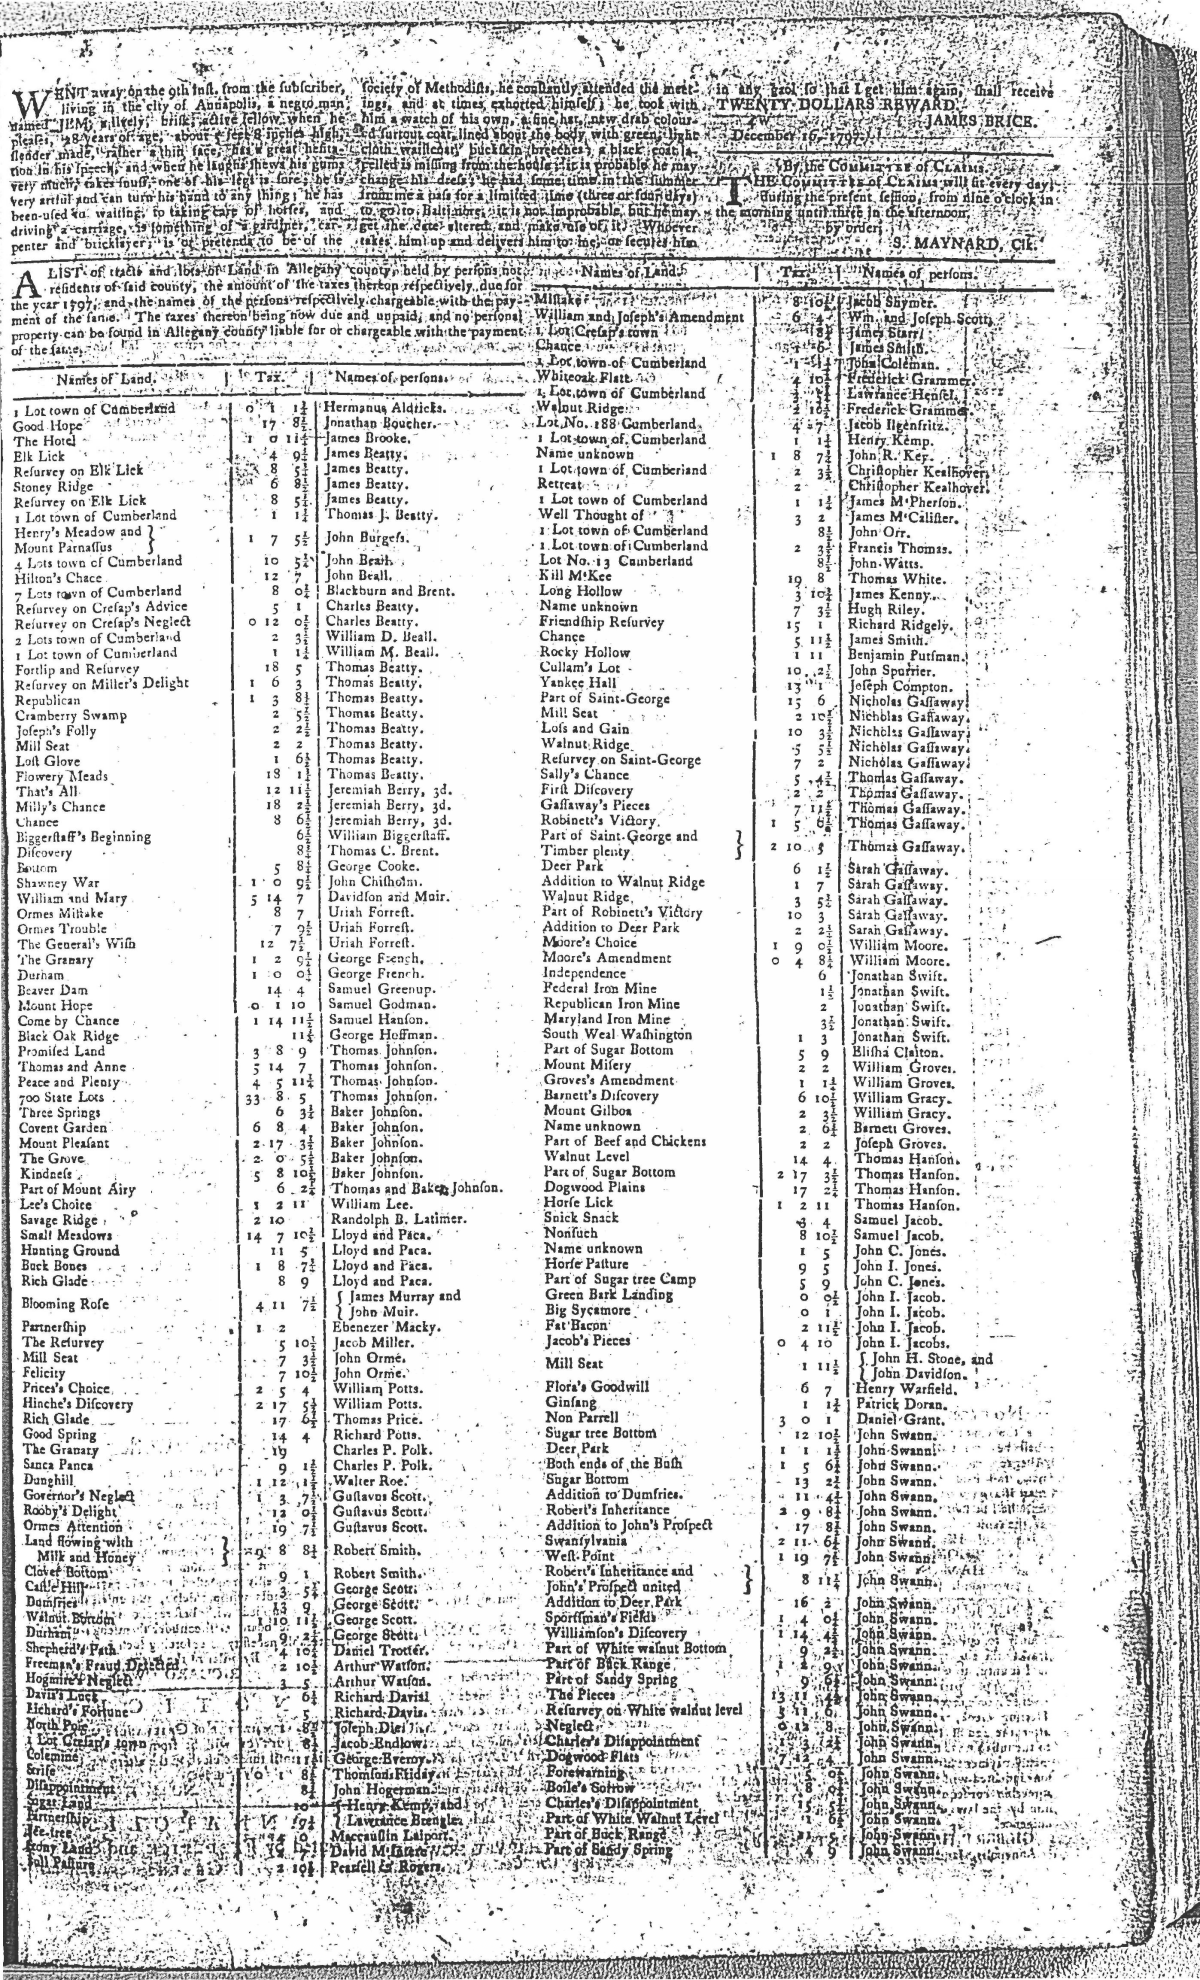 WENT away on the 9th inſt. from the ſubſcriber,
living in the city of Annapolis, a negro man
named JEM, a lively, briſk, active fellow when he
pleaſes, 28 years of age, about 5 feet 8 inches high,
ſlender made, rather a thin face, has a great heſita-
tion in his ſpeech, and when he laughs ſhews his gums
very much, takes ſnuff, one of his legs is ſore; he is
very artful and can turn his hand to any thing; he has
been uſed to waiting, to taking care of horſes, and
driving a carriage, is ſomething of a gardiner, car-
penter and bricklayer, is or pretends to be of the
ſociety of Methodiſts, he conſtantly attended the meet-
ings, and at times exhorted himſelf; he took with
him a watch of his own, a fine hat, new drab colour-
ed ſurtout coat, lined about the body with green, light
cloth waiſtcoat, buckſkin breeches; a black coat la-
pelled is miſſing from the houſe; it is probable he may
change his dreſs; he had ſome time in the ſummer
from me a paſs for a limited time (three or four days)
to go to Baltimore, it is not improbable but he may
get the date altered, and make uſe of it. Whoever
takes him up and delivers him to me, or ſecures him
in any gaol ſo that I get him again, ſhall receive
TWENTY DOLLARS REWARD.
JAMES BRICE.
December 16, 1797.
By the COMMITTEE of CLAIMS.
THE COMMITTEE of CLAIMS will ſit every day,
during the preſent ſeſſion, from nine o'clock in
the morning until three in the afternoon,
by order,
S. MAYNARD, Clk.
A LIST of tracts and lots of Land in Allegany county, held by perſons not
reſidents of ſaid county, the amount of the taxes thereon reſpectively due for
the year 1797, and the names of the perſons reſpectively chargeable with the pay-
ment of the ſame. The taxes thereon being now due and unpaid, and no perſonal
property can be found in Allegany county liable for or chargeable with the payment
of the ſame.
Names of Land. Tax. Names of perſons.
1 Lot town of Cumberland 0 1 1¼ Hermanus Aldricks.
Good Hope 17 8½ Jonathan Boucher.
The Hotel 1 0 11¼ James Brooke.
Elk Lick 4 9½ James Beatty.
Reſurvey on Elk Lick 8 5½ James Beatty.
Stoney Ridge 6 8½ James Beatty.
Reſurvey on Elk Lick 8 5½ James Beatty.
1 Lot town of Cumberland 1 1¼ Thomas J. Beatty.
Henry's Meadow and
Mount Parnaſſus } 1 7 5½ John Burgeſs.
4 Lots town of Cumberland 10 5¼ John Beall.
Hilton's Chace 12 7 John Beall.
7 Lots town of Cumberland 8 0½ Blackburn and Brent.
Reſurvey on Creſap's Advice 5 1 Charles Beatty.
Reſurvey on Creſap's Neglect 0 12 0½ Charles Beatty.
2 Lots town of Cumberland 2 3½ William D. Beall.
1 Lot town of Cumberland 1 1¼ William M. Beall.
Fortlip and Reſurvey 18 5 Thomas Beatty.
Reſurvey on Miller's Delight 1 6 3 Thomas Beatty.
Republican 1 3 8½ Thomas Beatty.
Cramberry Swamp 2 5½ Thomas Beatty.
Joſeph's Folly 2 2½ Thomas Beatty.
Mill Seat 2 2 Thomas Beatty.
Loſt Glove 1 6½ Thomas Beatty.
Flowery Meads 18 1½ Thomas Beatty.
That's All 12 11½ Jeremiah Berry, 3d.
Milly's Chance 18 2½ Jeremiah Berry, 3d.
Chance 8 6½ Jeremiah Berry, 3d.
Biggerſtaff's Beginning 6½ William Biggerſtaff.
Diſcovery 8½ Thomas C. Brent.
Bottom 5 8½ George Cooke.
Shawney War 1 0 9½ John Chiſholm.
William and Mary 5 14 7 Davidſon and Muir.
Ormes Miſtake 8 7 Uriah Forreſt.
Ormes Trouble 7 9½ Uriah Forreſt.
The General's Wiſh 12 7½ Uriah Forreſt.
The Granary 1 2 9½ George French.
Durham 1 0 0½ George French.
Beaver Dam 14 4 Samuel Greenup.
Mount Hope 0 1 10 Samuel Godman.
Come by Chance 1 14 11½ Samuel Hanſon.
Black Oak Ridge 11½ George Hoffman.
Promiſed Land 3 8 9 Thomas Johnſon.
Thomas and Anne 5 14 7 Thomas Johnſon.
Peace and Plenty 4 5 11¼ Thomas Johnſon.
700 State Lots 33 8 5 Thomas Johnſon.
Three Springs 6 3¼ Baker Johnſon.
Covent Garden 6 8 4 Baker Johnſon.
Mount Pleaſant 2 17 3½ Baker Johnſon.
The Grove 2 0 5½ Baker Johnſon.
Kindneſs 5 8 10½ Baker Johnſon.
Part of Mount Airy 6 2¼ Thomas and Baker Johnſon.
Lee's Choice 1 2 11 William Lee.
Savage Ridge 2 10 Randolph B. Latimer.
Small Meadows 14 7 10½ Lloyd and Paca.
Hunting Ground 11 5 Lloyd and Paca.
Buck Bones 1 8 7½ Lloyd and Paca.
Rich Glade 8 9 Lloyd and Paca.
Blooming Roſe 4 11 7½ { James Murray and
John Muir.
Partnerſhip 1 2 Ebenezer Macky.
The Reſurvey 5 10½ Jacob Miller.
Mill Seat 7 3½ John Orme.
Felicity 7 10½ John Orme.
Prices's Choice 2 5 4 William Potts.
Hinche's Diſcovery 2 17 5½ William Potts.
Rich Glade 17 6½ Thomas Price.
Good Spring 14 4 Richard Potts.
The Granary 19 Charles P. Polk.
Sanca Panca 9 1½ Charles P. Polk.
Dunghill 1 12 1½ Walter Roe.
Governor's Neglect 1 3 7½ Guſtavus Scott.
Rooby's Delight 12 0½ Guſtavus Scott.
Ormes Attention 19 7½ Guſtavus Scott.
Land flowing with
Milk and Honey } 9 8 8½ Robert Smith.
Clover Bottom 9 1 Robert Smith.
Caſtle Hill 3 5½ George Scott.
Dumfries 13 9 George Scott.
Walnut Bottom 1 10 11½ George Scott.
Durham 1 9 2½ George Scott.
Shepherd's Path 4 10½ Daniel Trotter.
Freeman's Fraud Detected 2 10½ Arthur Watſon.
Hogmire's Neglect 3 5 Arthur Watſon.
Davis's Luck 6½ Richard Davis.
Richard's Fortune 5 Richard Davis.
North Pole 8½ Joſeph
1 Lot Creſap's town 8½ Jacob Endlow.
Colemine 11½ George
Strife 0 1 8½ Thomſon
Diſappointment 8½ John Hogerman.
Sugar Land 10 { Henry Kemp, and
Partnerſhip 19½ Lawrance Brengle.
Maccauſlin Lalport.
Stony Land David
Bull Paſture 2 10½ Pearſell & Rogers.
Names of Land. Tax. Names of perſons.
Miſtake 8 10½ Jacob Snymer.
William and Joſeph's Amendment 6 4 Wm. and Joſeph Scott.
1 Lot Creſap's town 8½ James Starr.
Chance 6 James Smith.
1 Lot town of Cumberland 1 1¼ John Coleman.
Whiteoak Flatt 4 10½ Frederick Grammer.
1 Lot town of Cumberland Lawrance Henſel.
Walnut Ridge 2 10½ Frederick Grammer
Lot No. 188 Cumberland 4 7 Jacob Ilgenfritz.
1 Lot town of Cumberland 1 1¼ Henry Kemp.
Name unknown 1 8 7½ John R. Key.
1 Lot town of Cumberland 2 3½ Chriſtopher Kealhover.
Retreat 2 Chriſtopher Kealhover.
1 Lot town of Cumberland 1 1¼ James M'Pherſon.
Well Thought of 3 2 James M'Caliſter.
1 Lot town of Cumberland 8½ John Orr.
1 Lot town of Cumberland 2 3½ Francis Thomas.
Lot No. 13 Cumberland 8½ John Watts.
Kill M'Kee 19 8 Thomas White.
Long Hollow 3 10½ James Kenny.
Name unknown 7 3½ Hugh Riley.
Friendſhip Reſurvey 15 1 Richard Ridgely.
Chance 5 11½ James Smith.
Rocky Hollow 1 11 Benjamin Putſman.
Cullam's Lot 10 2½ John Spurrier.
Yankee Hall 13 1 Joſeph Compton.
Part of Saint-George 15 6 Nicholas Gaſſaway.
Mill Seat 2 10½ Nicholas Gaſſaway.
Loſs and Gain 10 3½ Nicholas Gaſſaway.
Walnut Ridge 5 5½ Nicholas Gaſſaway.
Reſurvey on Saint-George 7 2 Nicholas Gaſſaway.
Sally's Chance 5 4½ Thomas Gaſſaway.
Firſt Diſcovery 2 2 Thomas Gaſſaway.
Gaſſaway's Pieces 7 11½ Thomas Gaſſaway.
Robinett's Victory 1 5 6½ Thomas Gaſſaway.
Part of Saint-George and
Timber plenty } 2 10 5 Thomas Gaſſaway.
Deer Park 6 1½ Sarah Gaſſaway.
Addition to Walnut Ridge 1 7 Sarah Gaſſaway.
Walnut Ridge 3 5½ Sarah Gaſſaway.
Part of Robinett's Victory 10 3 Sarah Gaſſaway.
Addition to Deer Park 2 2½ Sarah Gaſſaway.
Moore's Choice 1 9 0½ William Moore.
Moore's Amendment 0 4 8½ William Moore.
Independence 6 Jonathan Swift.
Federal Iron Mine 1½ Jonathan Swift.
Republican Iron Mine 2 Jonathan Swift.
Maryland Iron Mine 3½ Jonathan Swift.
South Weal Waſhington 1 3 Jonathan Swift.
Part of Sugar Bottom 5 9 Eliſha Claiton.
Mount Miſery 2 2 William Groves.
Groves's Amendment 1 1¼ William Groves.
Barnett's Diſcovery 6 10½ William Gracy.
Mount Gilboa 2 3½ William Gracy.
Name unknown 2 6½ Barnett Groves.
Part of Beef and Chickens 2 2 Joſeph Groves.
Walnut Level 14 4 Thomas Hanſon.
Part of Sugar Bottom 2 17 3½ Thomas Hanſon.
Dogwood Plains 17 2½ Thomas Hanſon.
Horſe Lick 1 2 11 Thomas Hanſon.
Snick Snack 3 4 Samuel Jacob.
Nonſuch 8 10½ Samuel Jacob.
Name unknown 1 5 John C. Jones.
Horſe Paſture 9 5 John I. Jones.
Part of Sugar tree Camp 5 9 John C. Jones.
Green Bark Landing 0 0½ John I. Jacob.
Big Sycamore 0 1 John I. Jacob.
Fat Bacon 2 11½ John I. Jacob.
Jacob's Pieces 0 4 10 John I. Jacobs.
Mill Seat 1 11½ { John H. Stone, and
John Davidſon.
Flora's Goodwill 6 7 Henry Warfield.
Ginſang 1 1¼ Patrick Doran.
Non Parrell 3 0 1 Daniel Grant.
Sugar tree Bottom 12 10½ John Swann.
Deer Park 1 1 1½ John Swann.
Both ends of the Buſh 1 5 6½ John Swann.
Sugar Bottom 13 2½ John Swann.
Addition to Dumfries. 11 4½ John Swann.
Robert's Inheritance 2 9 8½ John Swann.
Addition to John's Proſpect 17 8½ John Swann.
Swanſylvania 2 11 6½ John Swann.
Weſt Point 1 19 7½ John Swann.
Robert's Inheritance and
John's Proſpect united } 8 11½ John Swann.
Addition to Deer Park 16 2 John Swann.
Sportſman's Fields 1 4 0½ John Swann.
Williamſon's Diſcovery 1 14 4½ John Swann.
Part of White walnut Bottom 9 2½ John Swann.
Part of Buck Range 1 2 9 John Swann.
Part of Sandy Spring 9 6½ John Swann.
The Pieces 13 11 4½ John Swann.
Reſurvey on White walnut level 3 11 6 John Swann.
Neglect 0 12 8 John Swann.
Charles's Diſappointment 1 3 2½ John Swann.
Dogwood Flats 7 12 4 John Swann.
Forewarning 5 0½ John Swann.
Boile's Sorrow 8 0½ John Swann.
Charles's Diſappointment 15 5½ John Swann.
Part of White Walnut Level 1 6½ John Swann.
Part of Buck Range 11 5 John Swann.
Part of Sandy Spring 4 9 John Swann.